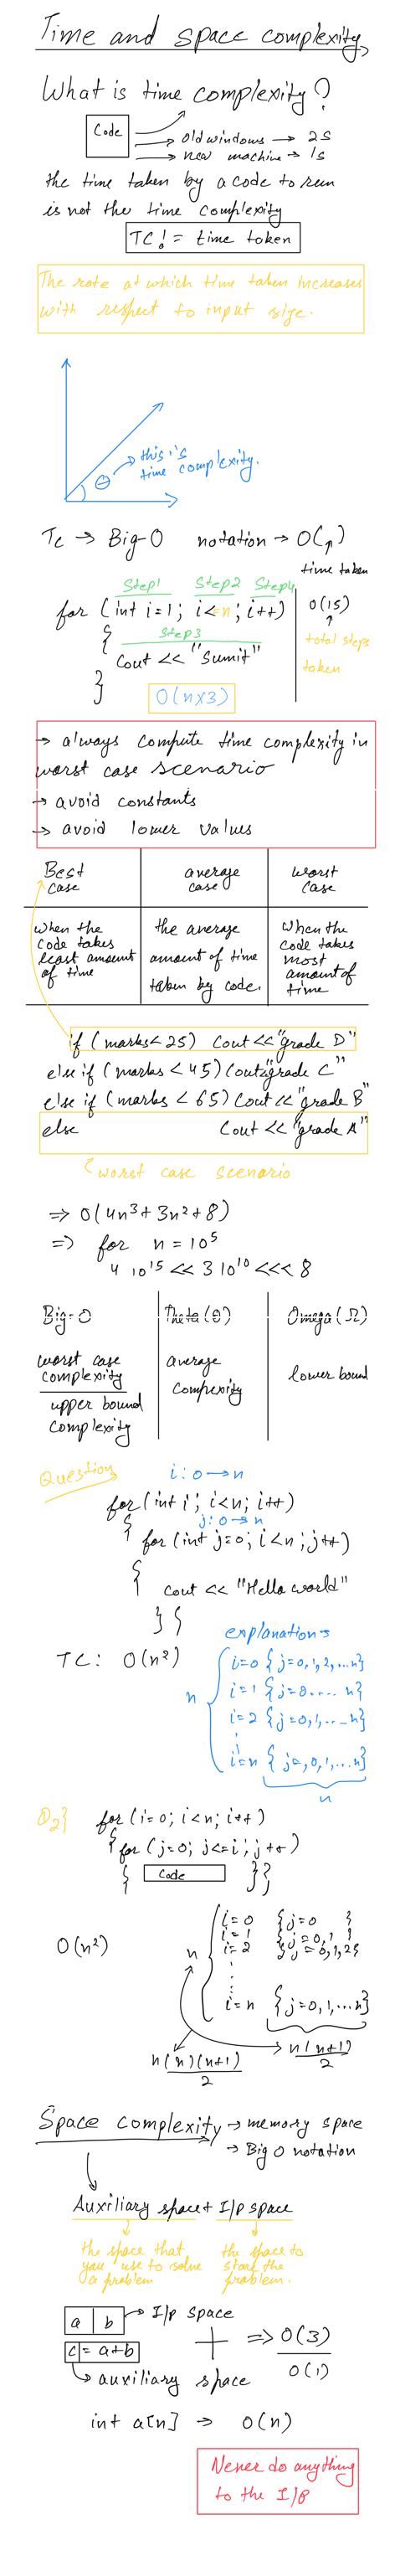 Time and space complexity
What is time complexity?
Code
old windows → 2s
new machine → 1s
the time taken by a code to run
is not the time complexity
TC != time token
The rate at which time taken increases
with respect to input size.
θ → this is
time complexity.
Tc → Big-O notation → O(n)
time taken
Step1 Step2 Step4
for (int i=1; i<=n; i++)
O(15)
{ Step3
Cout << "Sumit"
}
total steps
taken
O(n×3)
→ always compute time complexity in
worst case scenario
→ avoid constants
→ avoid lower values
Best case
average case
worst case
when the
code takes
least amount
of time
the average
amount of time
taken by code.
When the
code takes
most
amount of
time
if (marks < 25) Cout << "grade D"
else if (marks < 45) Cout<<"grade C"
else if (marks < 65) Cout << "grade B"
else Cout << "grade A"
worst case scenario
⇒ O(4n³+3n²+8)
⇒ for n = 10⁵
4 10¹⁵ << 3 10¹⁰ <<< 8
Big-O
Theta (θ)
Omega (Ω)
worst case
complexity
upper bound
complexity
average
compexity
lower bound
Question
i: 0 → n
for (int i; i<n; i++)
j: 0 → n
{ for (int j=0; i<n; j++)
{
cout << "Hello world"
} }
TC: O(n²)
explanation→
n
i=0 {j=0,1,2,...n}
i=1 {j=0.... n}
i=2 {j=0,1,...n}
i=n {j=,0,1,...n}
n
Q2} for (i=0; i<n; i++)
{ for (j=0; j<=i; j++)
{ Code }}
O(n²)
n
i=0 {j=0 }
i=1 {j=0,1 }
i=2 {j=0,1,2}
i=n {j=0,1,...n}
n(n)(n+1)/2
n(n+1)/2
Space complexity → memory space
→ Big O notation
Auxiliary space + I/p space
the space that
you use to solve
a problem
the space to
the
problem.
a | b → I/p space
c = a+b
+ ⇒ O(3)
O(1)
auxiliary space
int a[n] → O(n)
Never do anything
to the I/p